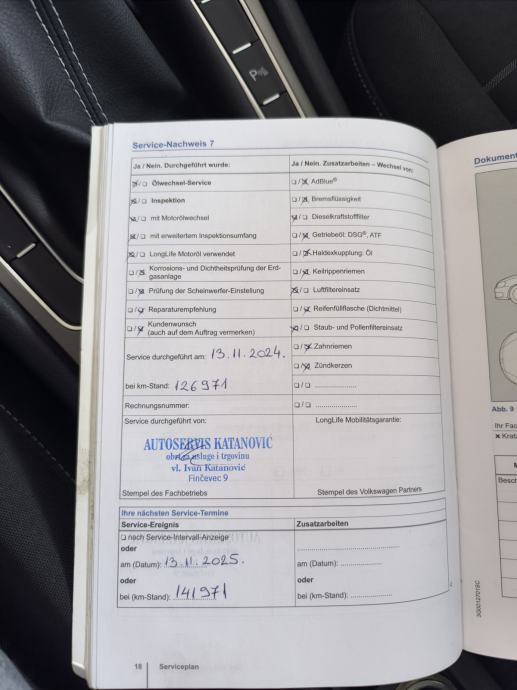 P
Service-Nachweis 7
Ja / Nein. Durchgeführt wurde:
☒/☐ Ölwechsel-Service
☒/☐ Inspektion
☒/☐ mit Motorölwechsel
☒/☐ mit erweitertem Inspektionsumfang
☒/☐ LongLife Motoröl verwendet
☐/☒ Korrosions- und Dichtheitsprüfung der Erd-
gasanlage
☐/☒ Prüfung der Scheinwerfer-Einstellung
☐/☒ Reparaturempfehlung
☐/☒ Kundenwunsch
(auch auf dem Auftrag vermerken)
Service durchgeführt am: 13.11.2024.
bei km-Stand: 126971
Rechnungsnummer:
Service durchgeführt von:
AUTOSERVIS KATANOVIĆ
obrt za usluge i trgovinu
vl. Ivan Katanović
Finčevec 9
Stempel des Fachbetriebs
Ja / Nein. Zusatzarbeiten – Wechsel von:
☐/☒ AdBlue®
☐/☒ Bremsflüssigkeit
☒/☐ Dieselkraftstofffilter
☐/☒ Getriebeöl: DSG®, ATF
☐/☒ Haldexkupplung: Öl
☐/☒ Keilrippenriemen
☒/☐ Luftfiltereinsatz
☐/☒ Reifenfüllflasche (Dichtmittel)
☒/☐ Staub- und Pollenfiltereinsatz
☐/☒ Zahnriemen
☐/☒ Zündkerzen
☐/☐ ....................
☐/☐ ....................
LongLife Mobilitätsgarantie:
Stempel des Volkswagen Partners
Ihre nächsten Service-Termine
Service-Ereignis
☐ nach Service-Intervall-Anzeige
oder
am (Datum): 13.11.2025.
oder
bei (km-Stand): 141971
Zusatzarbeiten
....................
am (Datum): ....................
oder
bei (km-Stand): ....................
18 Serviceplan
Dokument
Abb. 9
Ihr Fac
× Kratz
Besch